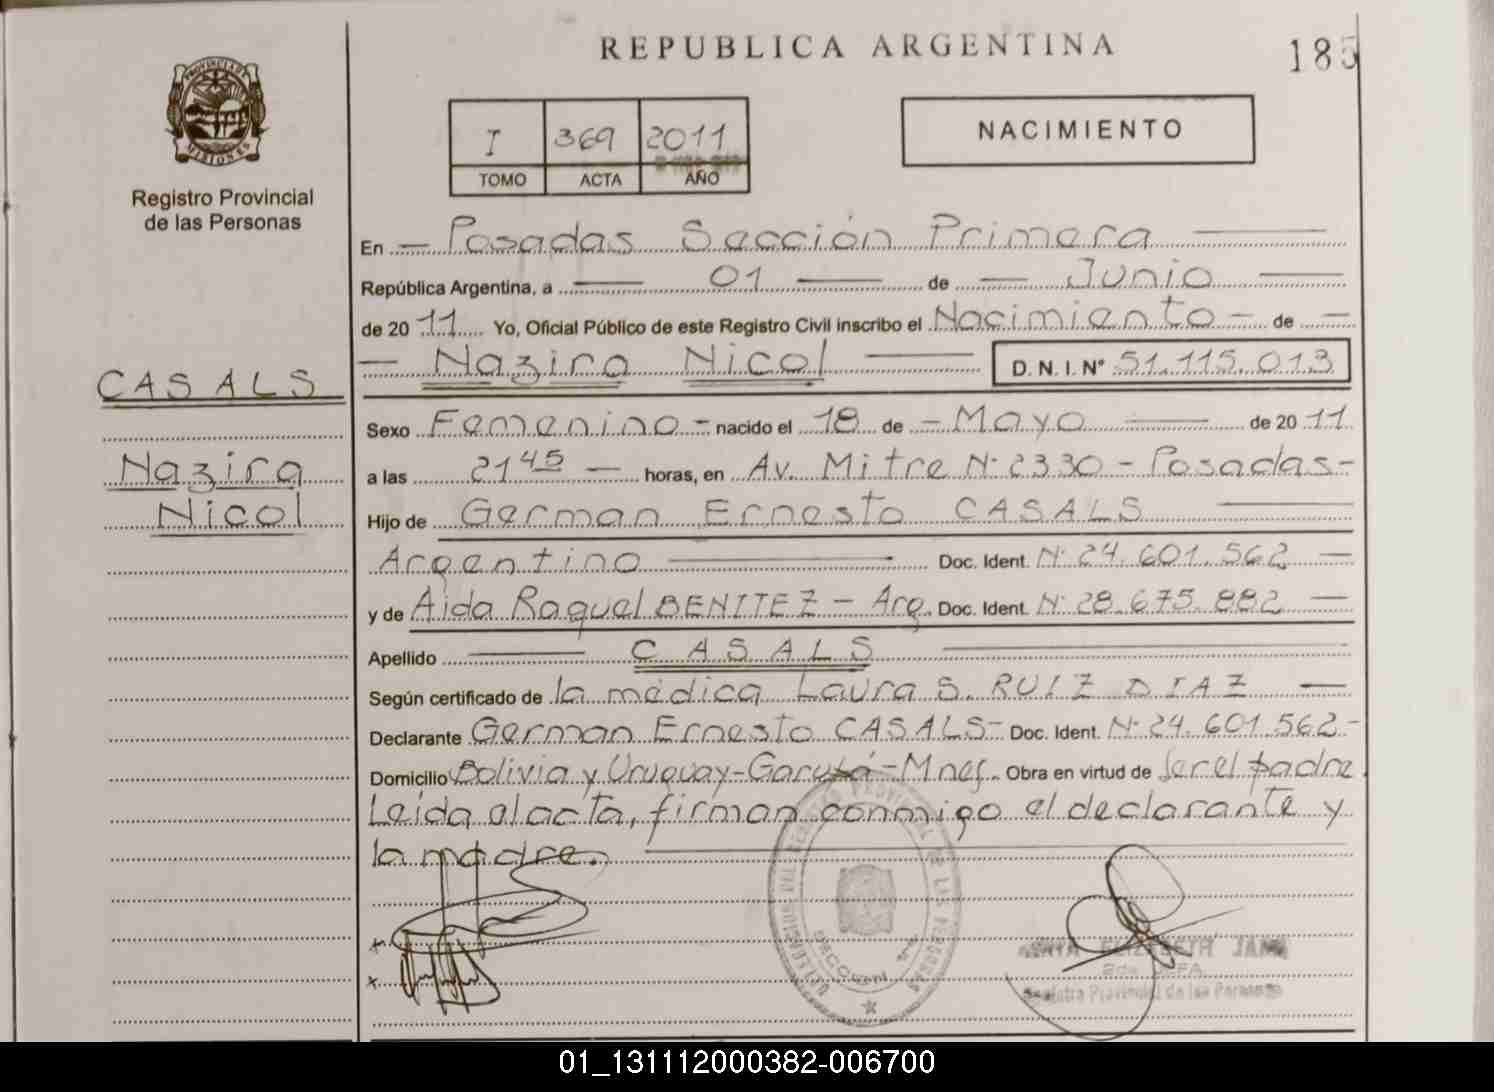 REPUBLICA ARGENTINA
185
PROVINCIA DE MISIONES
Registro Provincial
de las Personas
I 369 2011
TOMO ACTA AÑO
NACIMIENTO
En — Posadas Sección Primera —
República Argentina, a — 01 — de — Junio —
de 2011 Yo, Oficial Público de este Registro Civil inscribo el Nacimiento — de —
— Nazira Nicol — D. N. I. Nº 51.115.013
CASALS
Nazira
Nicol
Sexo Femenino - nacido el 18 de — Mayo — de 2011
a las 21 45 — horas, en Av. Mitre Nº 2330 - Posadas-
Hijo de German Ernesto CASALS —
Argentino — Doc. Ident. Nº 24.601.562 —
y de Aida Raquel BENITEZ - Arg. Doc. Ident. Nº 28.675.882 —
Apellido — CASALS —
Según certificado de la médica Laura S. RUIZ DIAZ —
Declarante German Ernesto CASALS- Doc. Ident. Nº 24.601.562-
Domicilio Bolivia y Uruguay-Garupá-Mnes. Obra en virtud de ser el padre.
Leída al acta, firman conmigo el declarante y
la madre. —
x
x
ELIZABETH
JEFA
Registro Provincial de las Personas
01_131112000382-006700